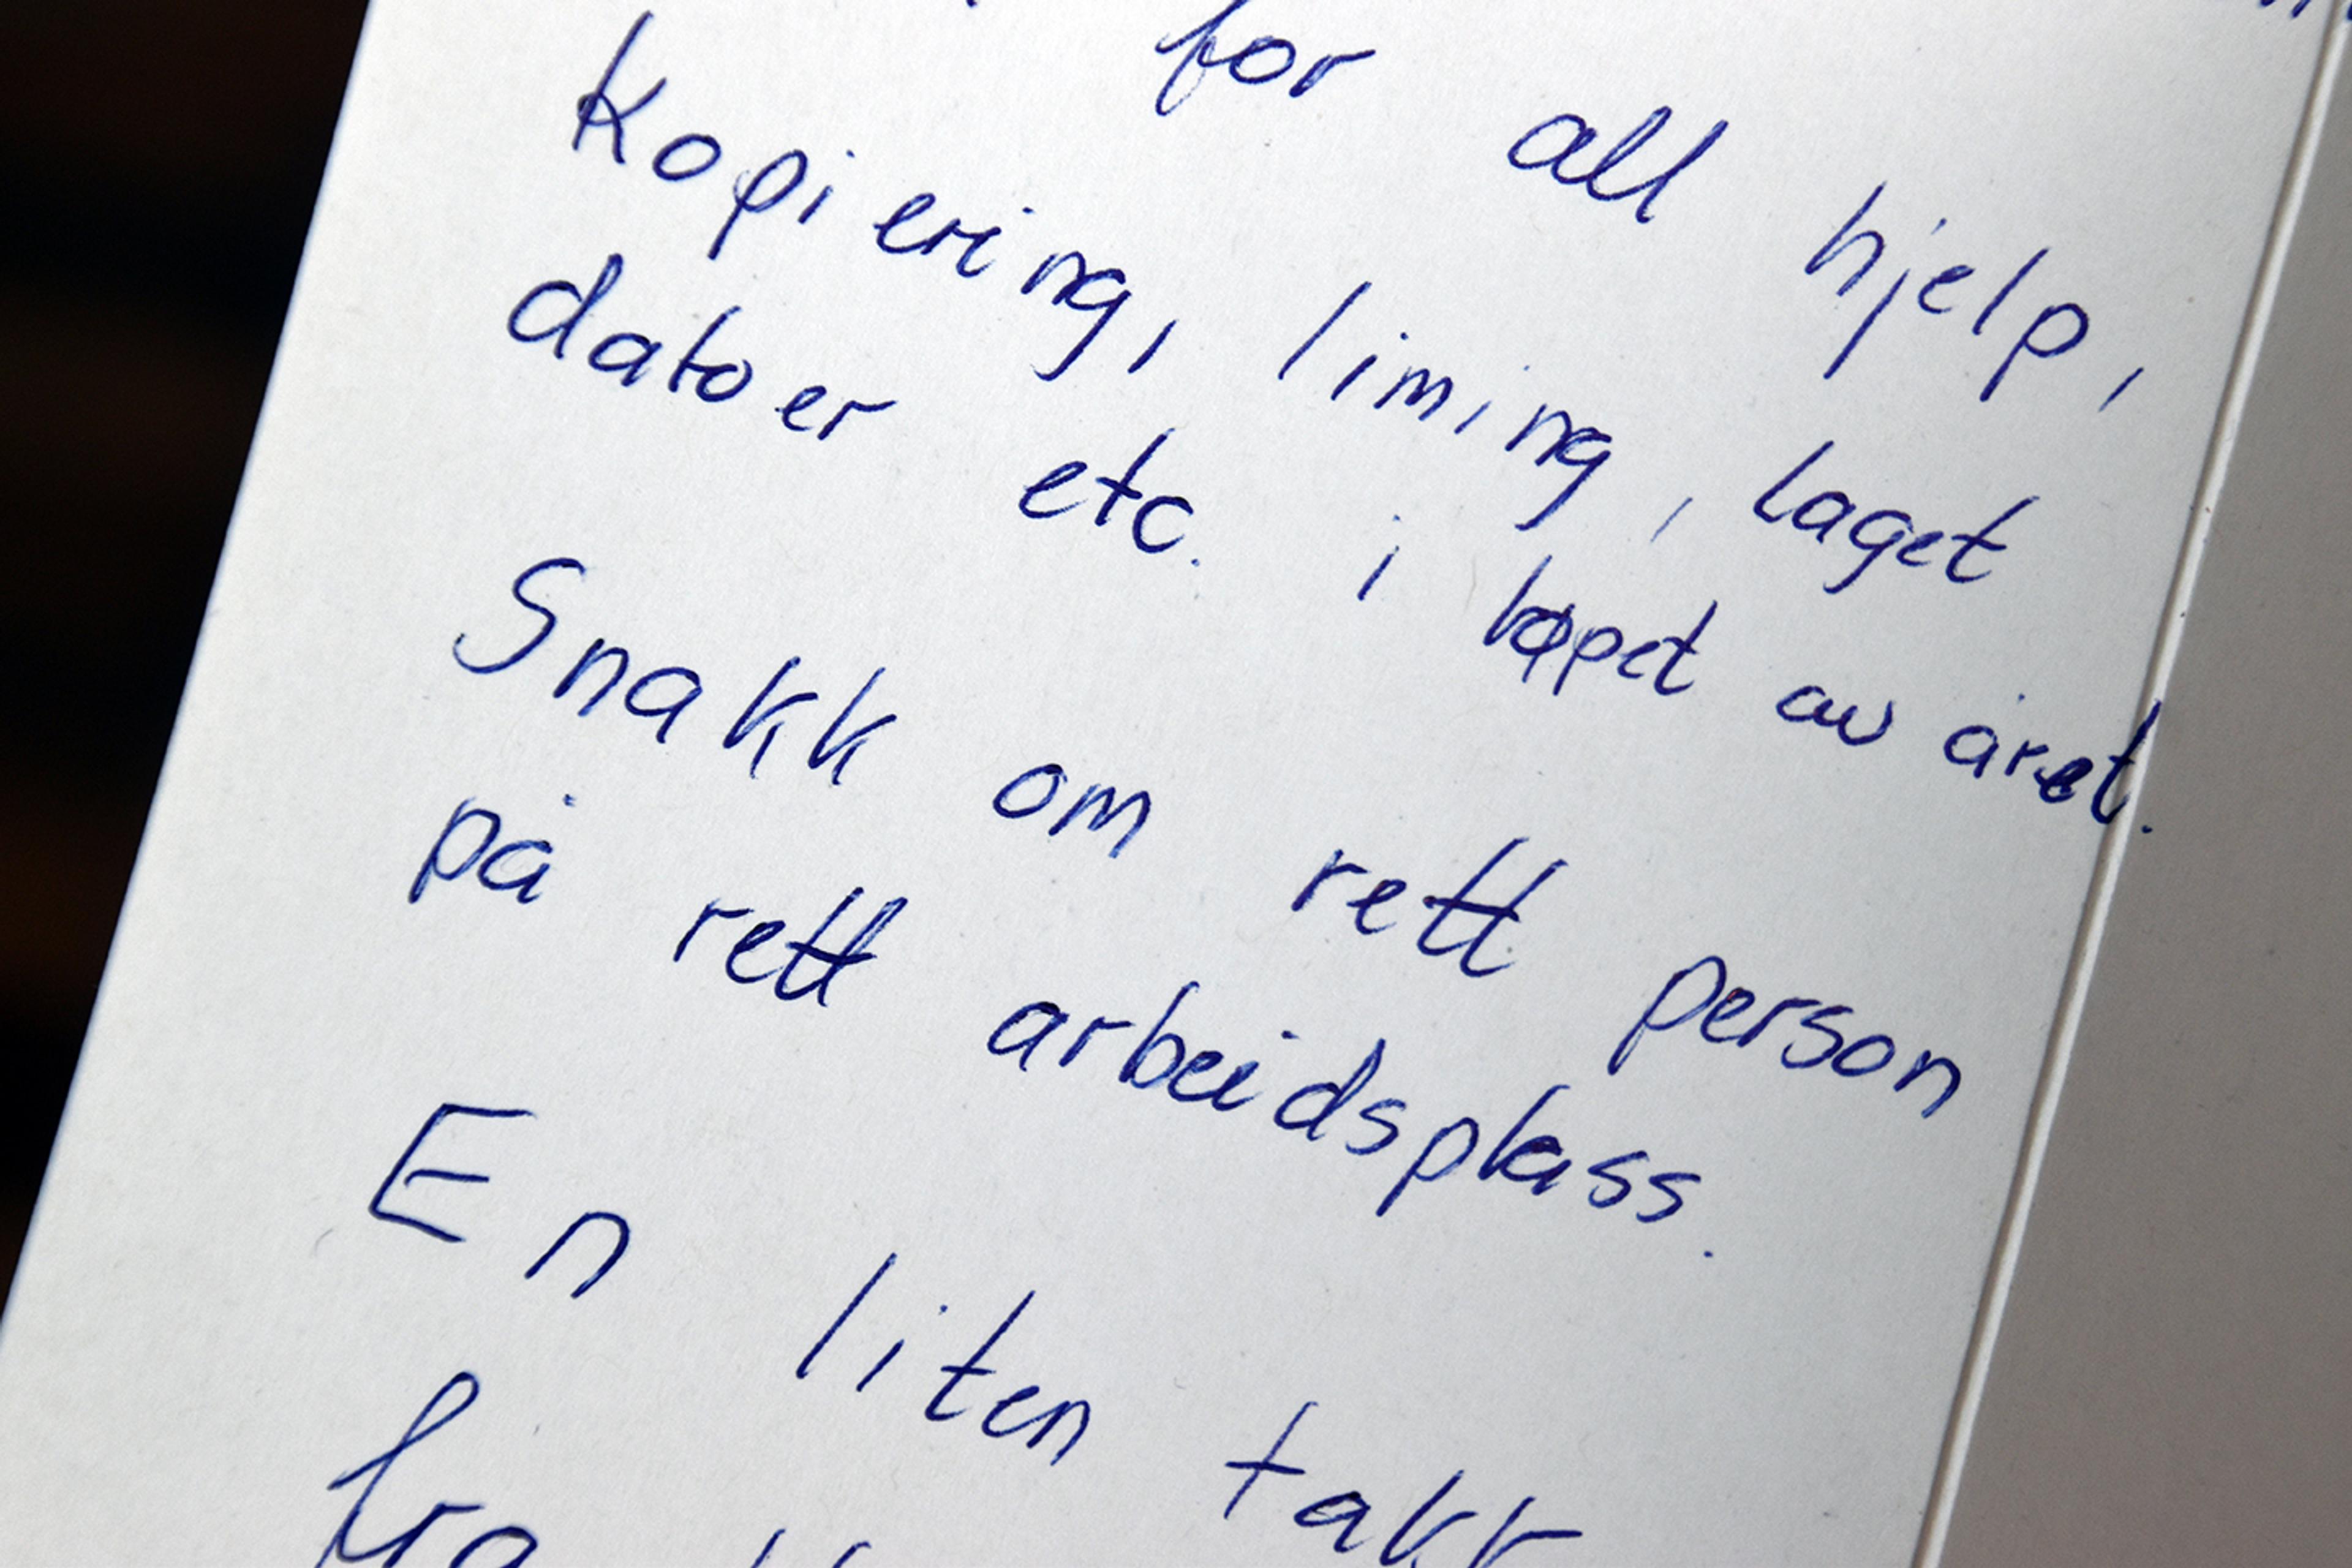 for all hjelp,
Kopiering, liming, laget
datoer etc. i løpet av året.
Snakk om rett person
på rett arbeidsplass.
En liten takk
fra